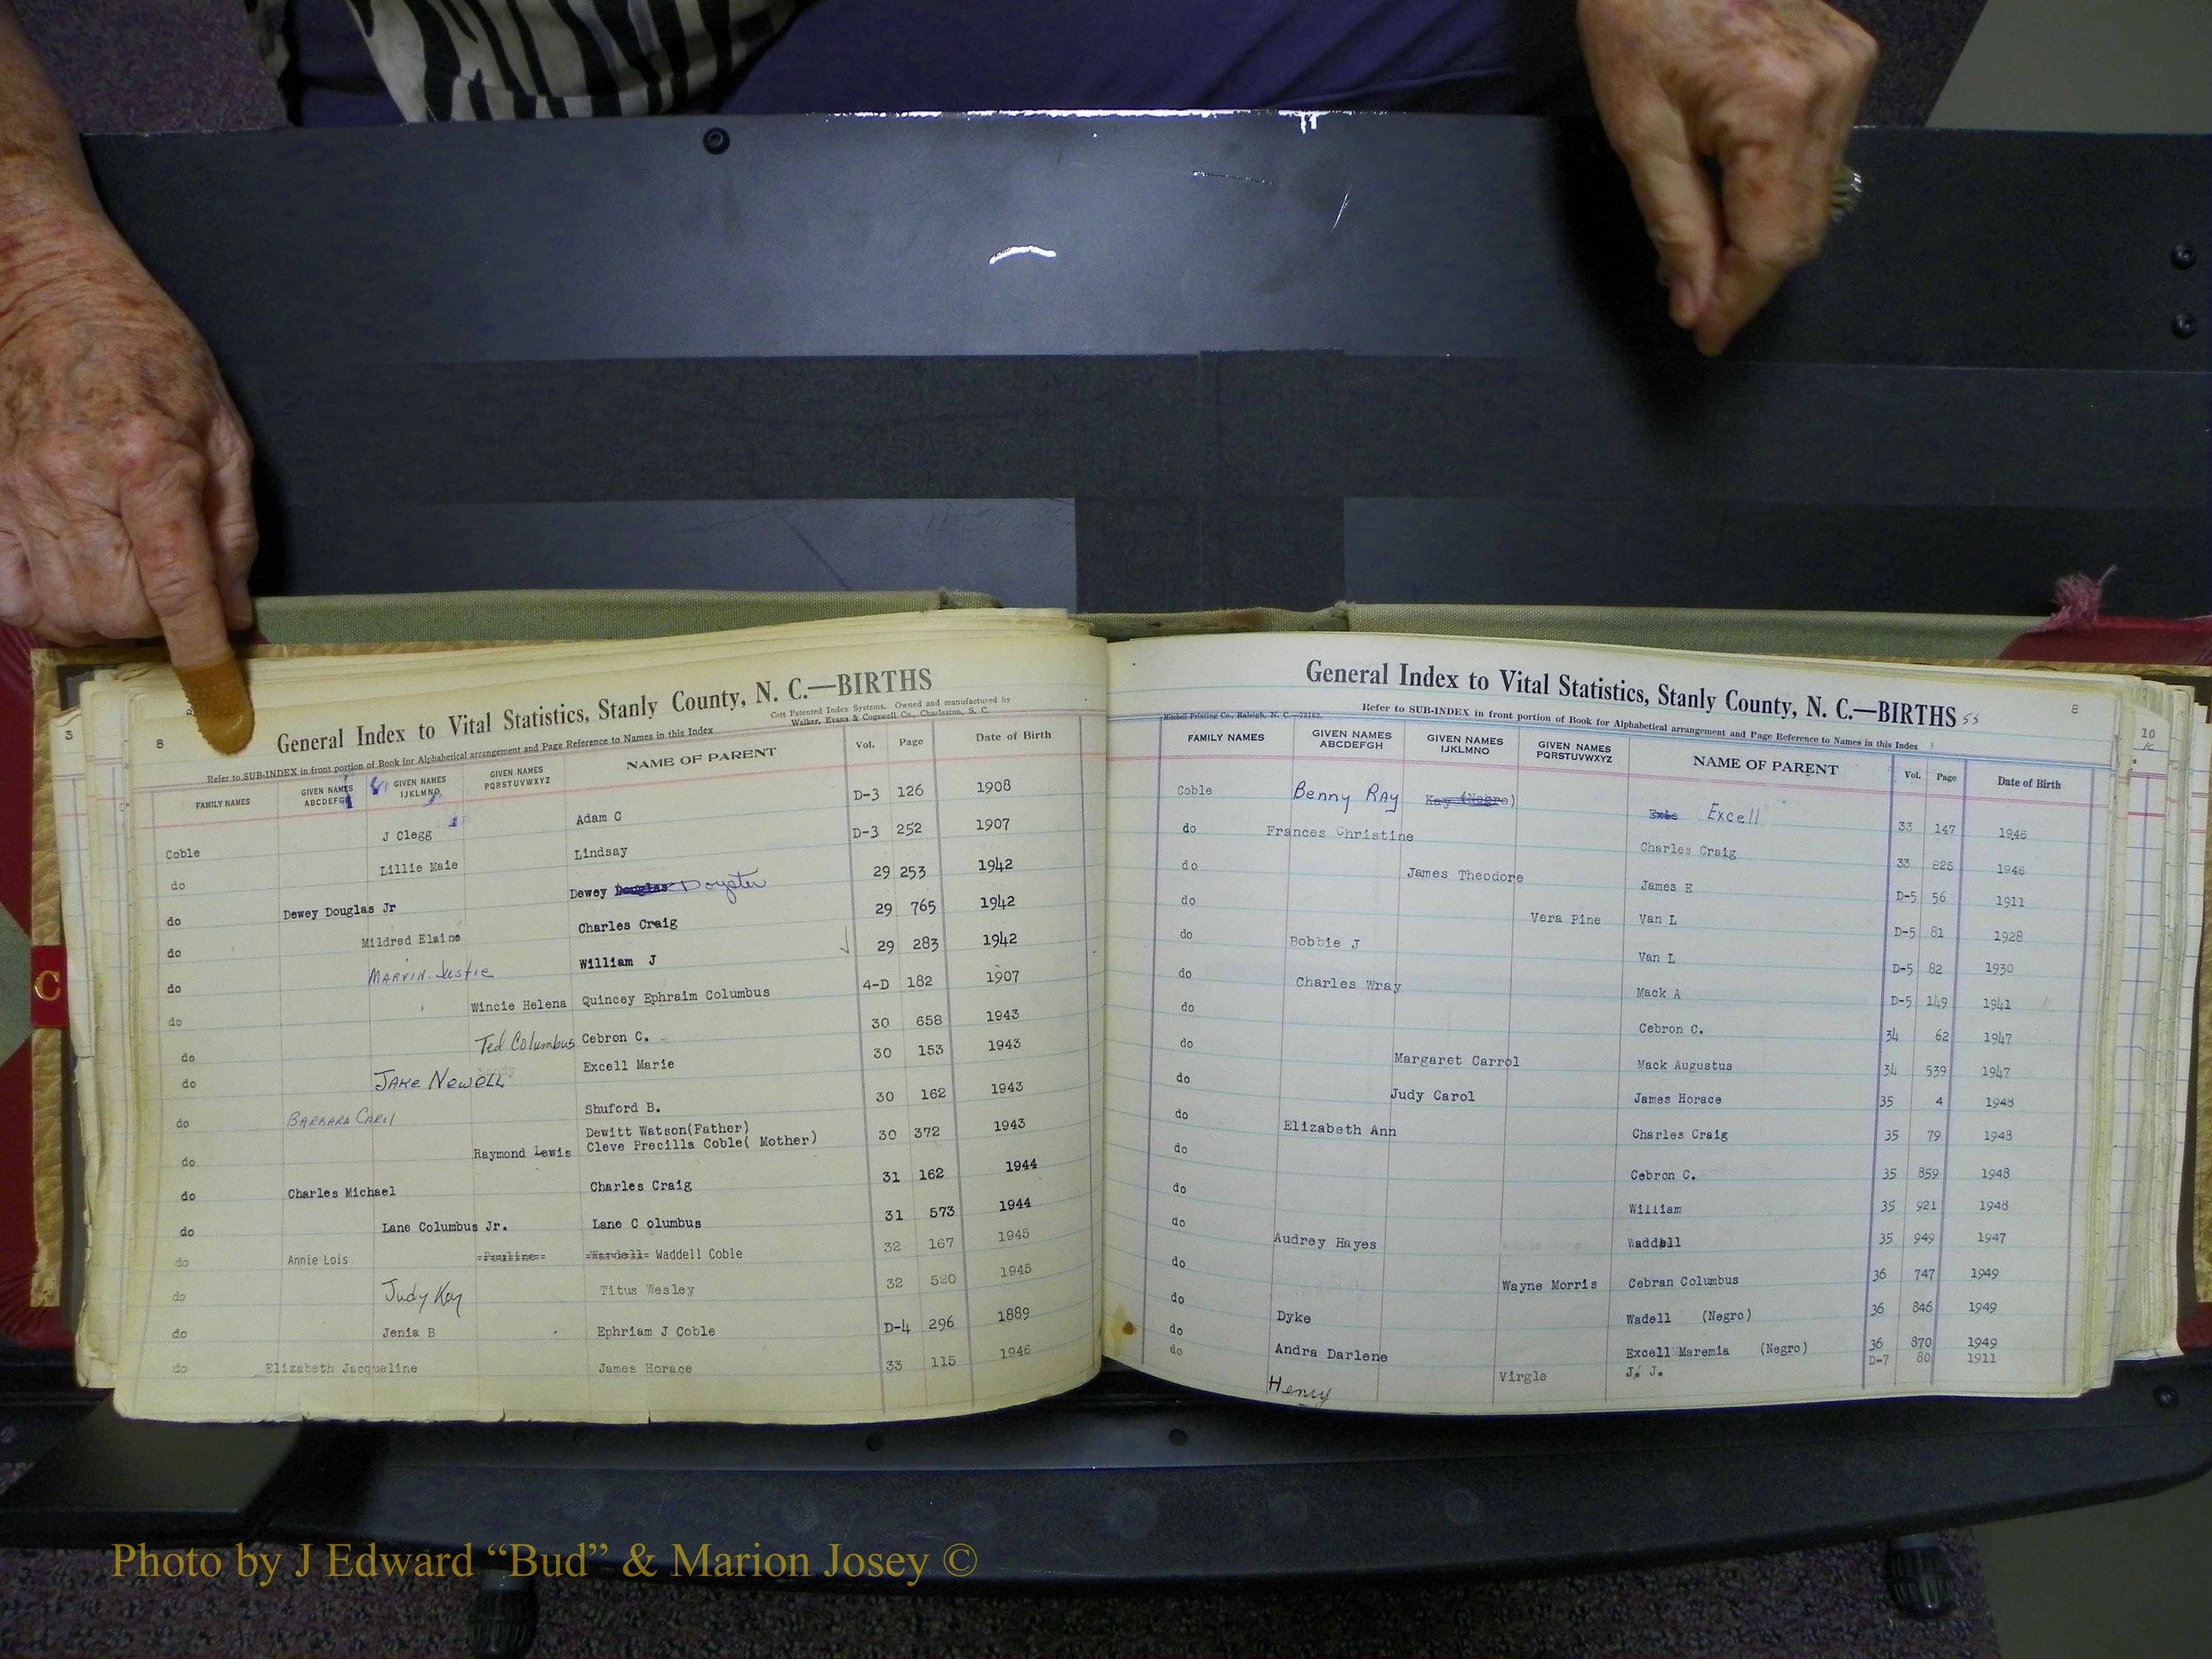 8
General Index to Vital Statistics, Stanly County, N. C.—BIRTHS
Cott Patented Index Systems. Owned and manufactured by
Walker, Evans & Cogswell Co., Charleston, S. C.
Refer to SUB-INDEX in front portion of Book for Alphabetical arrangement and Page Reference to Names in this Index
FAMILY NAMES GIVEN NAMES ABCDEFGH GIVEN NAMES IJKLMNO GIVEN NAMES PQRSTUVWXYZ NAME OF PARENT Vol. Page Date of Birth
Coble J Clegg Adam C D-3 126 1908
do Lillie Maie Lindsay D-3 252 1907
do Dewey Douglas Jr Dewey Douglas Doyster 29 253 1942
do Mildred Elaine Charles Craig 29 765 1942
do MARVIN William J 29 283 1942
do Wincie Helena Quincey Ephraim Columbus 4-D 182 1907
do Ted Columbus Cebron C. 30 658 1943
do JAKE NEWELL Excell Marie 30 153 1943
do BARBARA CAROL Shuford B. 30 162 1943
do Raymond Lewis Dewitt Watson(Father)
Cleve Precilla Coble( Mother) 30 372 1943
do Charles Michael Charles Craig 31 162 1944
do Lane Columbus Jr. Lane C olumbus 31 573 1944
do Annie Lois =Pauline= =Wardell= Waddell Coble 32 167 1945
do Judy Kay Titus Wesley 32 520 1945
do Jenia B Ephriam J Coble D-4 296 1889
do Elizabeth Jacqueline James Horace 33 115 1946
General Index to Vital Statistics, Stanly County, N. C.—BIRTHS 55
8
Mitchell Printing Co., Raleigh, N. C.—73162.
Refer to SUB-INDEX in front portion of Book for Alphabetical arrangement and Page Reference to Names in this Index
FAMILY NAMES GIVEN NAMES ABCDEFGH GIVEN NAMES IJKLMNO GIVEN NAMES PQRSTUVWXYZ NAME OF PARENT Vol. Page Date of Birth
Coble Benny RAy Kay (Negro) Excell 33 147 1946
do Frances Christine Charles Craig 33 825 1946
do James Theodore James E D-5 56 1911
do Vera Pine Van L D-5 81 1928
do Bobbie J Van L D-5 82 1930
do Charles Wray Mack A D-5 149 1941
do Cebron C. 34 62 1947
do Margaret Carrol Mack Augustus 34 539 1947
do Judy Carol James Horace 35 4 1948
do Elizabeth Ann Charles Craig 35 79 1948
do Cebron C. 35 859 1948
do William 35 921 1948
do Audrey Hayes Waddell 35 949 1947
do Wayne Morris Cebran Columbus 36 747 1949
do Dyke Wadell (Negro) 36 846 1949
do Andra Darlene Excell Maremia (Negro) 36 870 1949
do Henry Virgle J. J. D-7 80 1911
3
C
10
Photo by J Edward “Bud” & Marion Josey ©